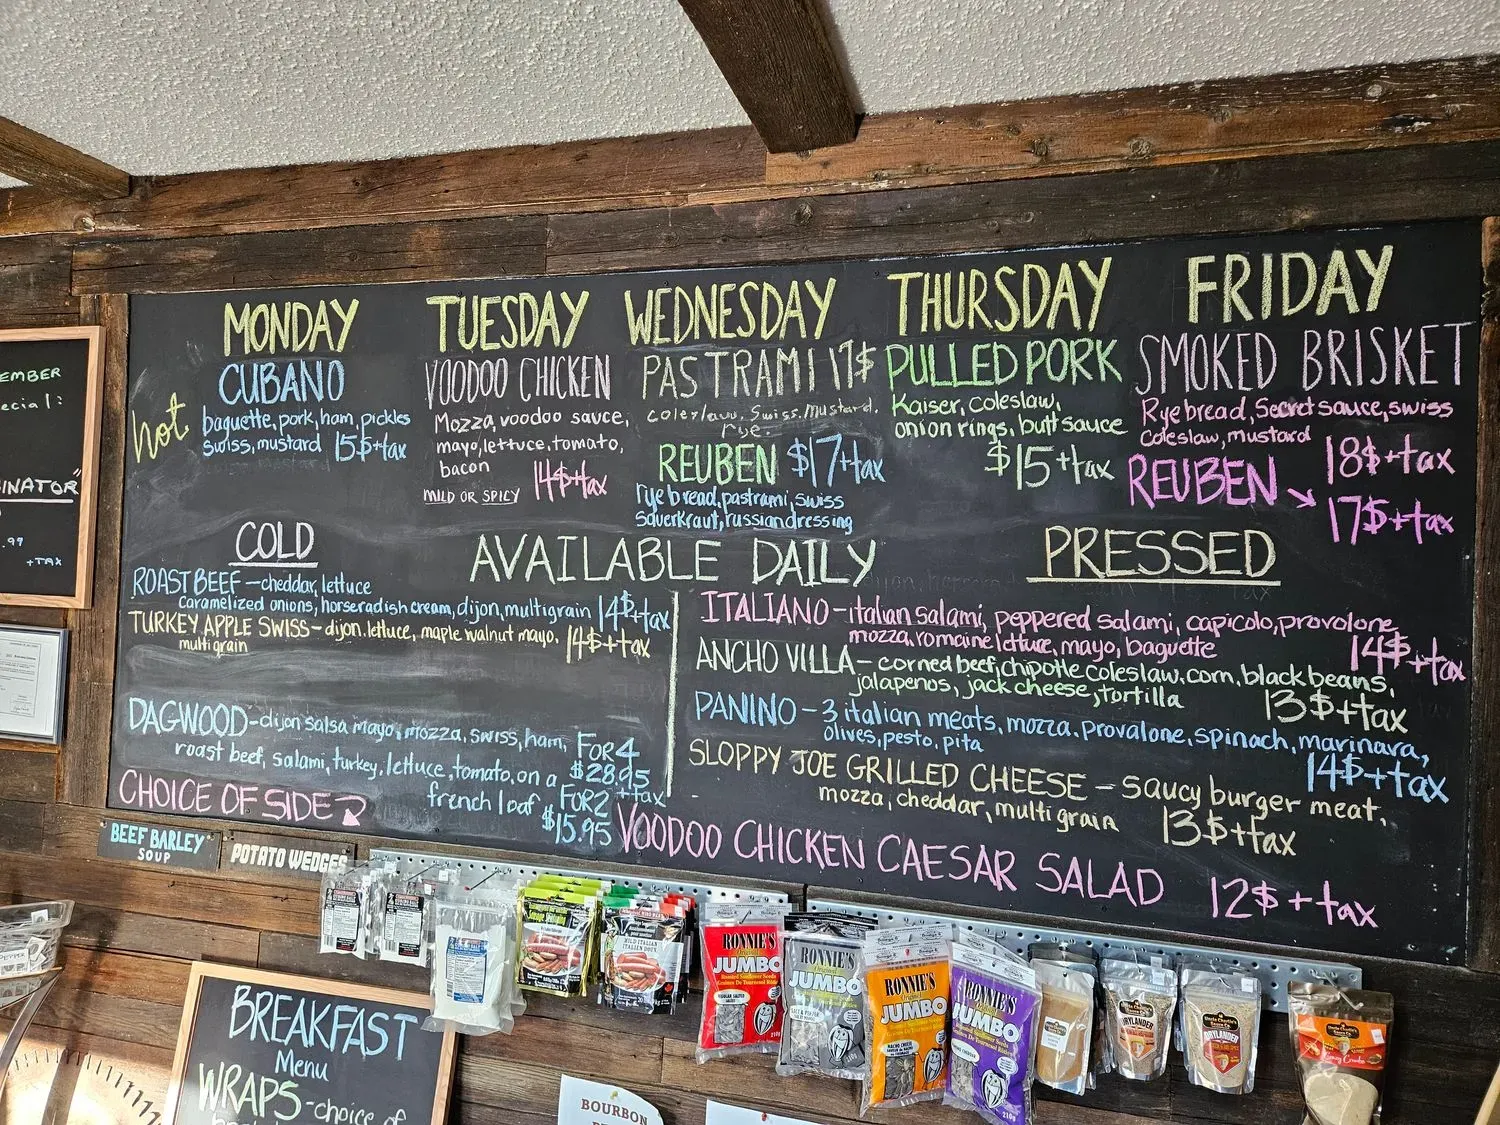 MONDAY
CUBANO
hot
baguette, pork, ham, pickles
swiss, mustard 15$+tax
TUESDAY
VOODOO CHICKEN
Mozza, voodoo sauce,
mayo, lettuce, tomato,
bacon
MILD OR SPICY 14$+tax
WEDNESDAY
PASTRAMI 17$
coleslaw, Swiss, mustard,
rye.
REUBEN $17+tax
rye bread, pastrami, swiss
sauerkraut, russian dressing
THURSDAY
PULLED PORK
Kaiser, coleslaw,
onion rings, butt sauce
$15+tax
FRIDAY
SMOKED BRISKET
Rye bread, Secret sauce, swiss
coleslaw, mustard 18$+tax
REUBEN → 17$+tax
AVAILABLE DAILY
COLD
ROAST BEEF - cheddar, lettuce
caramelized onions, horseradish cream, dijon, multigrain 14$+tax
TURKEY APPLE SWISS - dijon, lettuce, maple walnut mayo, 14$+tax
multigrain
DAGWOOD - dijon salsa mayo, mozza, swiss, ham, FOR 4
roast beef, salami, turkey, lettuce, tomato, on a $28.95
french loaf FOR 2 +tax
$15.95
CHOICE OF SIDE
PRESSED
ITALIANO - italian salami, peppered salami, capicolo, provolone
mozza, romaine lettuce, mayo, baguette 14$+tax
ANCHO VILLA - corned beef, chipotle coleslaw, corn, black beans,
jalapenos, jack cheese, tortilla 13$+tax
PANINO - 3 italian meats, mozza, provalone, spinach, marinara,
olives, pesto, pita 14$+tax
SLOPPY JOE GRILLED CHEESE - saucy burger meat,
mozza, cheddar, multigrain 13$+tax
VOODOO CHICKEN CAESAR SALAD 12$+tax
EMBER
ecial:
INATOR"
.99
+TAX
BEEF BARLEY
SOUP
POTATO WEDGES
BREAKFAST
Menu
WRAPS - choice of
MILD ITALIAN
RONNIE'S
Original
JUMBO
RONNIE'S
Original
JUMBO
RONNIE'S
Original
JUMBO
NACHO CHEESE
RONNIE'S
JUMBO
210g
BOURBON